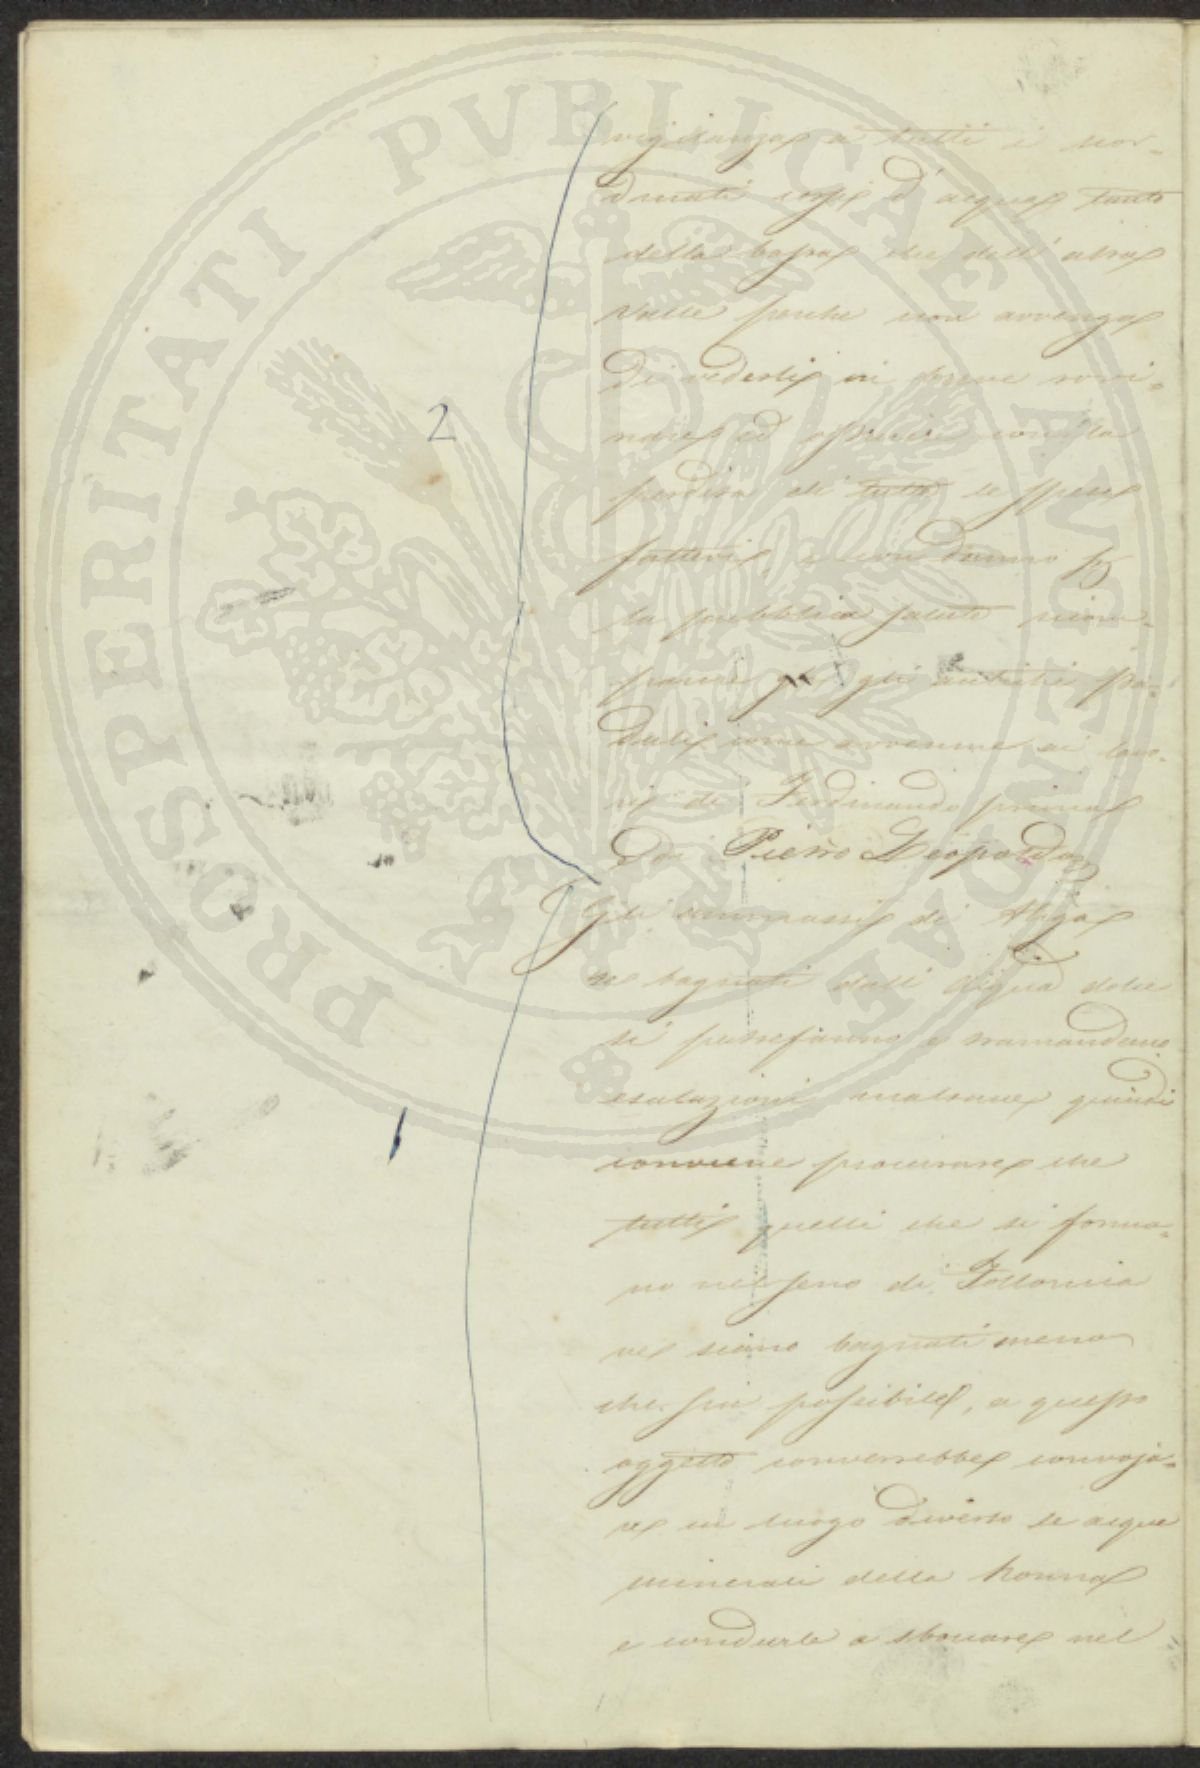 PROSPERITATI PVBLICAE AVGENDAE
vigilanza a tutti i nor=
dinati corpi d'acqua tanto
della bassa che dell'altra
Valle perche non avvenga
di vederli in breve rovi=
nare ed
perdita di tutte le spese
fattevi, e con danno p
la pubblica salute
gli antichi pa=
duli come avvenne ai lavo=
ri di Ferdinando primo
Doi Pietro Leopoldo
2
Gli ammassi di Alga
se bagnati dall'acqua dolce
si putrefanno e tramandano
esalazioni malsane, quindi
conviene procurare che
tutti quelli che si forma=
no nel seno di Follonica
ve siano bagnati meno
che sia possibile, a questo
oggetto converrebbe convoja=
re in luogo diverso le acque
minerali della Ronna
e condurle a sboccare nel
1